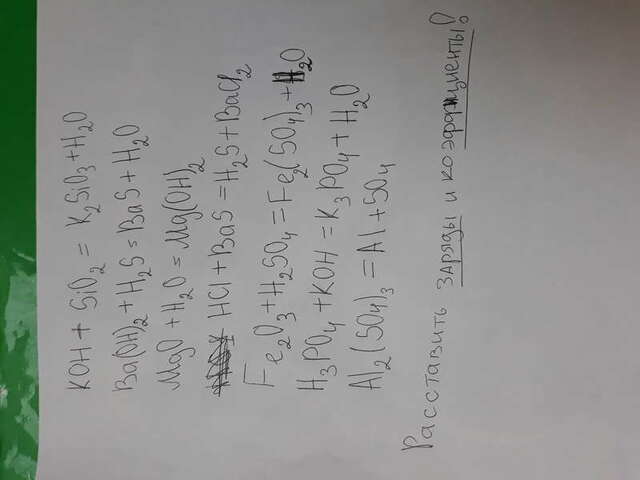 KOH + SiO2 = K2SiO3 + H2O
Ba(OH)2 + H2S = BaS + H2O
MgO + H2O = Mg(OH)2
HCl + BaS = H2S + BaCl2
Fe2O3 + H2SO4 = Fe2(SO4)3 + H2O
H3PO4 + KOH = K3PO4 + H2O
Al2(SO4)3 = Al + SO4
Расставить заряды и коэффициенты!